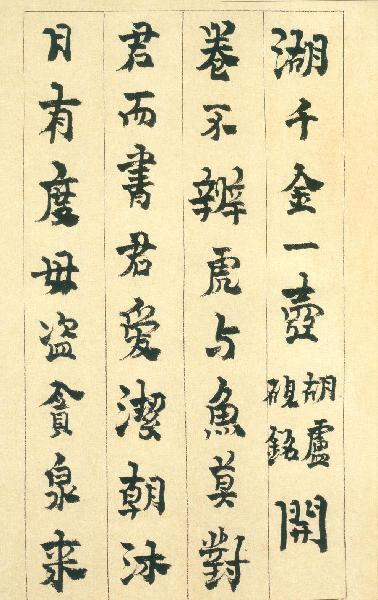 湖千金一壺胡盧硯銘開
卷不辨虎与魚莫對
君而書君愛潔朝沐
日有度毋盜貪泉来